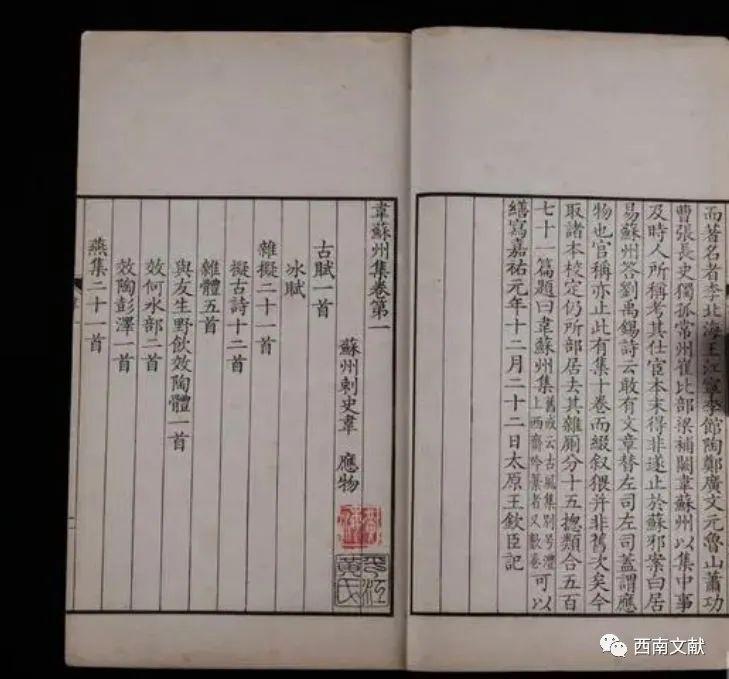 而著名者李北海王江寧李館陶鄭廣文元魯山蕭功
曹張長史獨孤常州崔比部梁補闕韋蘇州以集中事
及時人所稱考其仕宦本末得非遂止於蘇邪案白居
易蘇州答劉禹錫詩云敢有文章替左司左司蓋謂應
物也官稱亦止此有集十卷而綴叙猥并非舊文矣今
取諸本校定仍所部居去其雜厠分十五揔類合五百
七十一篇題曰韋蘇州集舊或云古風集別号灃上西齋吟藁者又數卷可以
繕寫嘉祐元年十二月二十二日太原王欽臣記
韋蘇州集卷第一
蘇州刺史韋 應物
古賦一首
冰賦
雜擬二十一首
擬古詩十二首
雜體五首
與友生野飲效陶體一首
效何水部二首
效陶彭澤一首
燕集二十一首
黃氏
西南文献